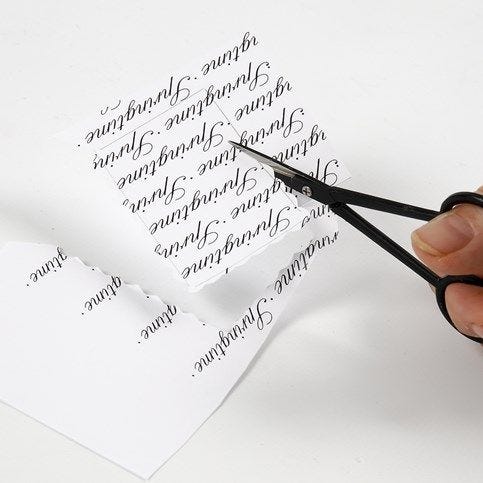 ngtime
Springtime · Springtime · S
Springtime · Springtime
Springtime · Springtime
Springtime
Springtime
Springtime
time · Springtime
time ·
time ·
time ·